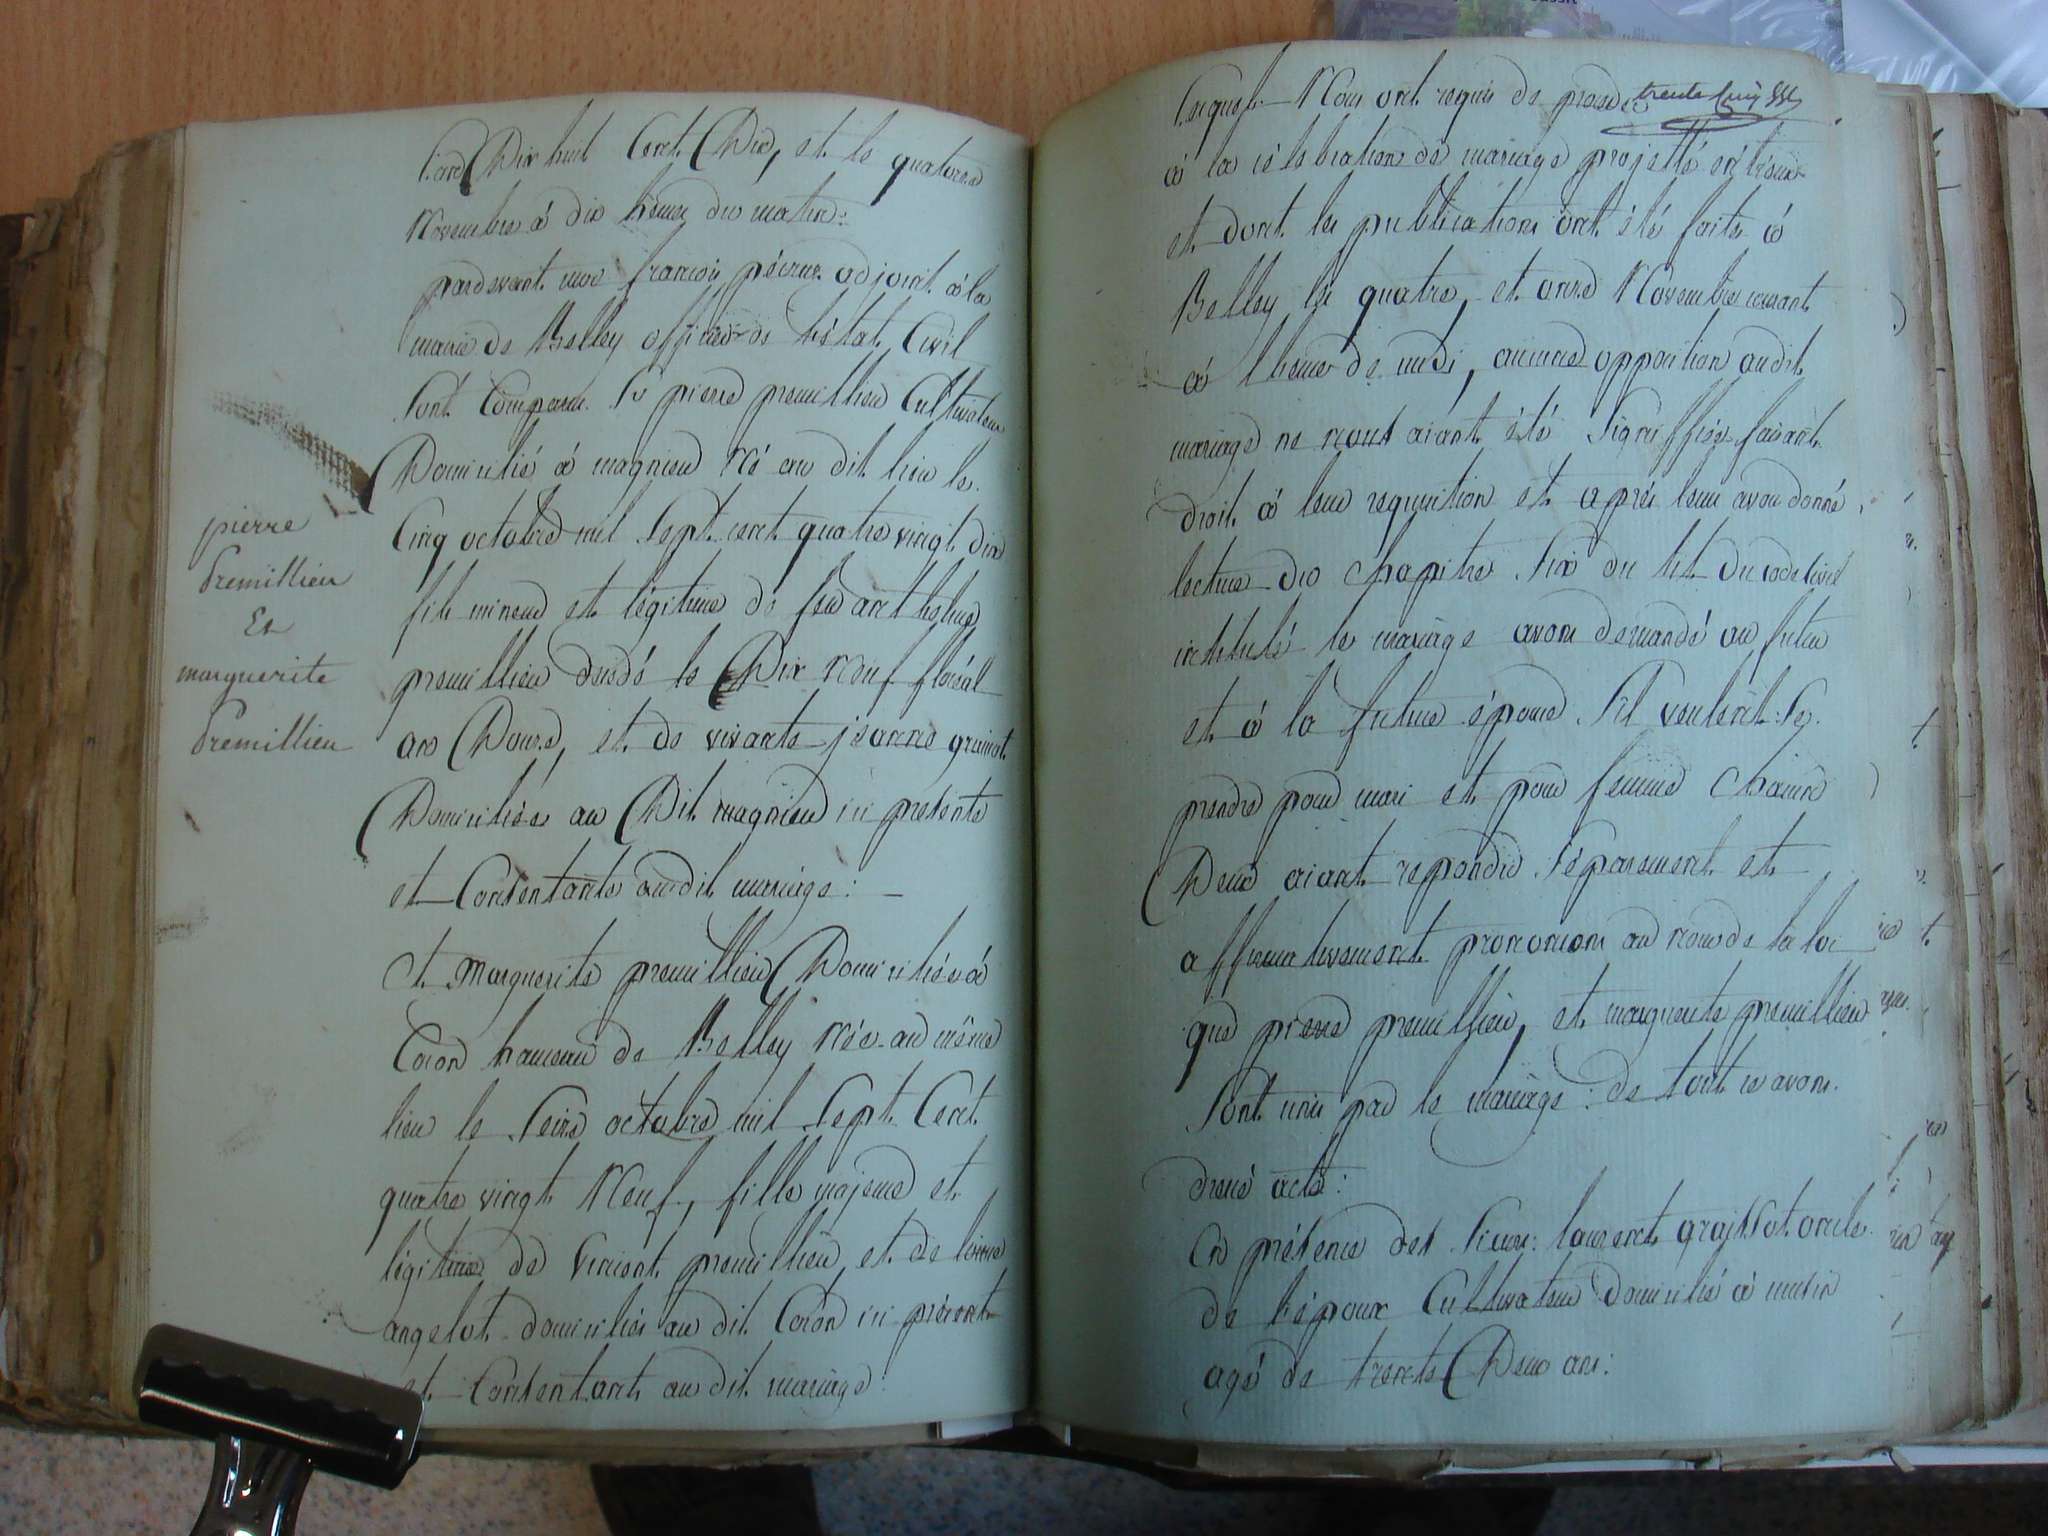 pierre
Premillieu
Et
marguerite
Premillieu
L'an Dix huit Cent Dix, et le quatorze
Novembre à dix heures du matin:
pardevant nous françois adjoint à la
mairie de Belley officier de l'état Civil
Sont Comparus Sr pierre premillieu Cultivateur
Domicilié à magnieu Né au dit lieu le
Cinq octobre mil Sept cent quatre vingt dix
fils mineur et légitime de feu anthelme
premillieu décédé le Dix Neuf floréal
an Douze, et de vivante jeanne
Domiciliée au Dit magnieu ici présente
et Consentante audit mariage: —
et Marguerite premillieu Domiciliée à
Coron hameau de Belley Née au même
lieu le Seize octobre mil Sept Cent
quatre vingt Neuf, fille majeure et
légitime de Vincent premillieu et de
angelot domiciliés au dit Coron ici présents
et Consentants au dit mariage:
Lesquels Nous ont requis de procéder trente
à la célébration du mariage projetté entr'eux
et dont les publications ont été faites à
Belley les quatre, et onze Novembre courant
à l'heure de midi, aucune opposition audit
mariage ne nous aiant été Signiffiée faisant
droit à leur requisition et après leur avoir donné
lecture du chapitre Six du tit. du code civil
intitulé le mariage avons demandé au futur
et à la future épouse S'il veulent Se
prendre pour mari et pour femme chacun
Deux aiant repondu Séparement et
affirmativement prononcons au nom de la loi
que pierre premillieu, et marguerite premillieu
Sont unis par le mariage: de tout ce avons
dressé acte:
En présence des Sieurs laurent oncle
de l'époux Cultivateur domicilié à
agé de trente Deux ans: